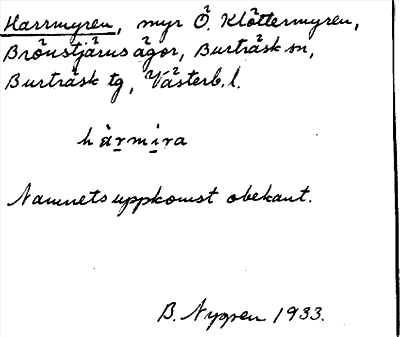 Harrmyren, myr Ö. Klöttermyren,
Brönstjärns ägor, Burträsk sn,
Burträsk tg, Västerb. l.
härmira
Namnets uppkomst obekant.
B. Nygren 1933.